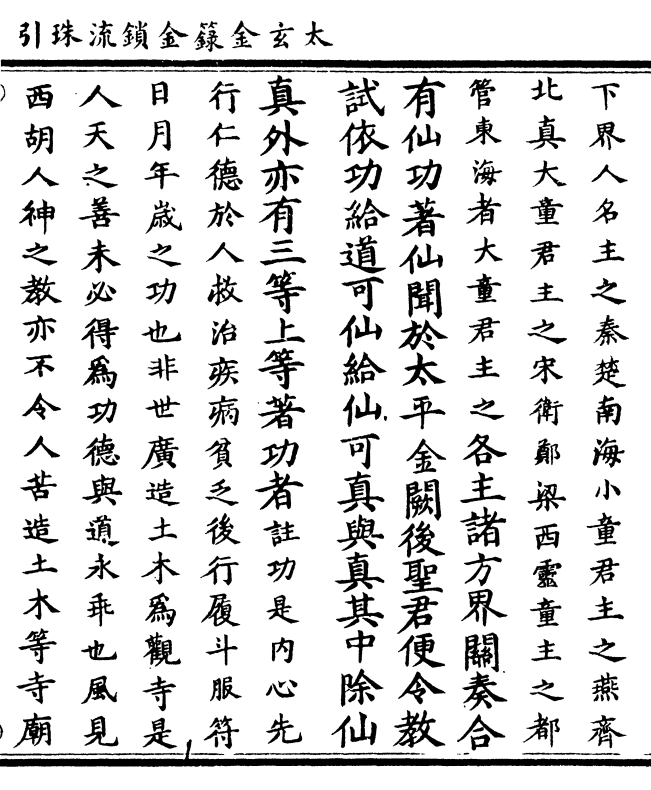 太玄金籙金鎖流珠引
下界人名主之秦楚南海小童君主之燕齊
北真大童君主之宋衛鄭梁西靈童主之都
管東海者大童君主之各主諸方界關奏合
有仙功著仙聞於太平金闕後聖君便令教
試依功給道可仙給仙可真與真其中除仙
真外亦有三等上等著功者註功是内心先
行仁德於人救治疾病貧乏後行履斗服符
日月年歲之功也非世廣造土木爲觀寺是
人天之善未必得爲功德與道永乖也風見
西胡人神之教亦不令人苦造土木等寺廟